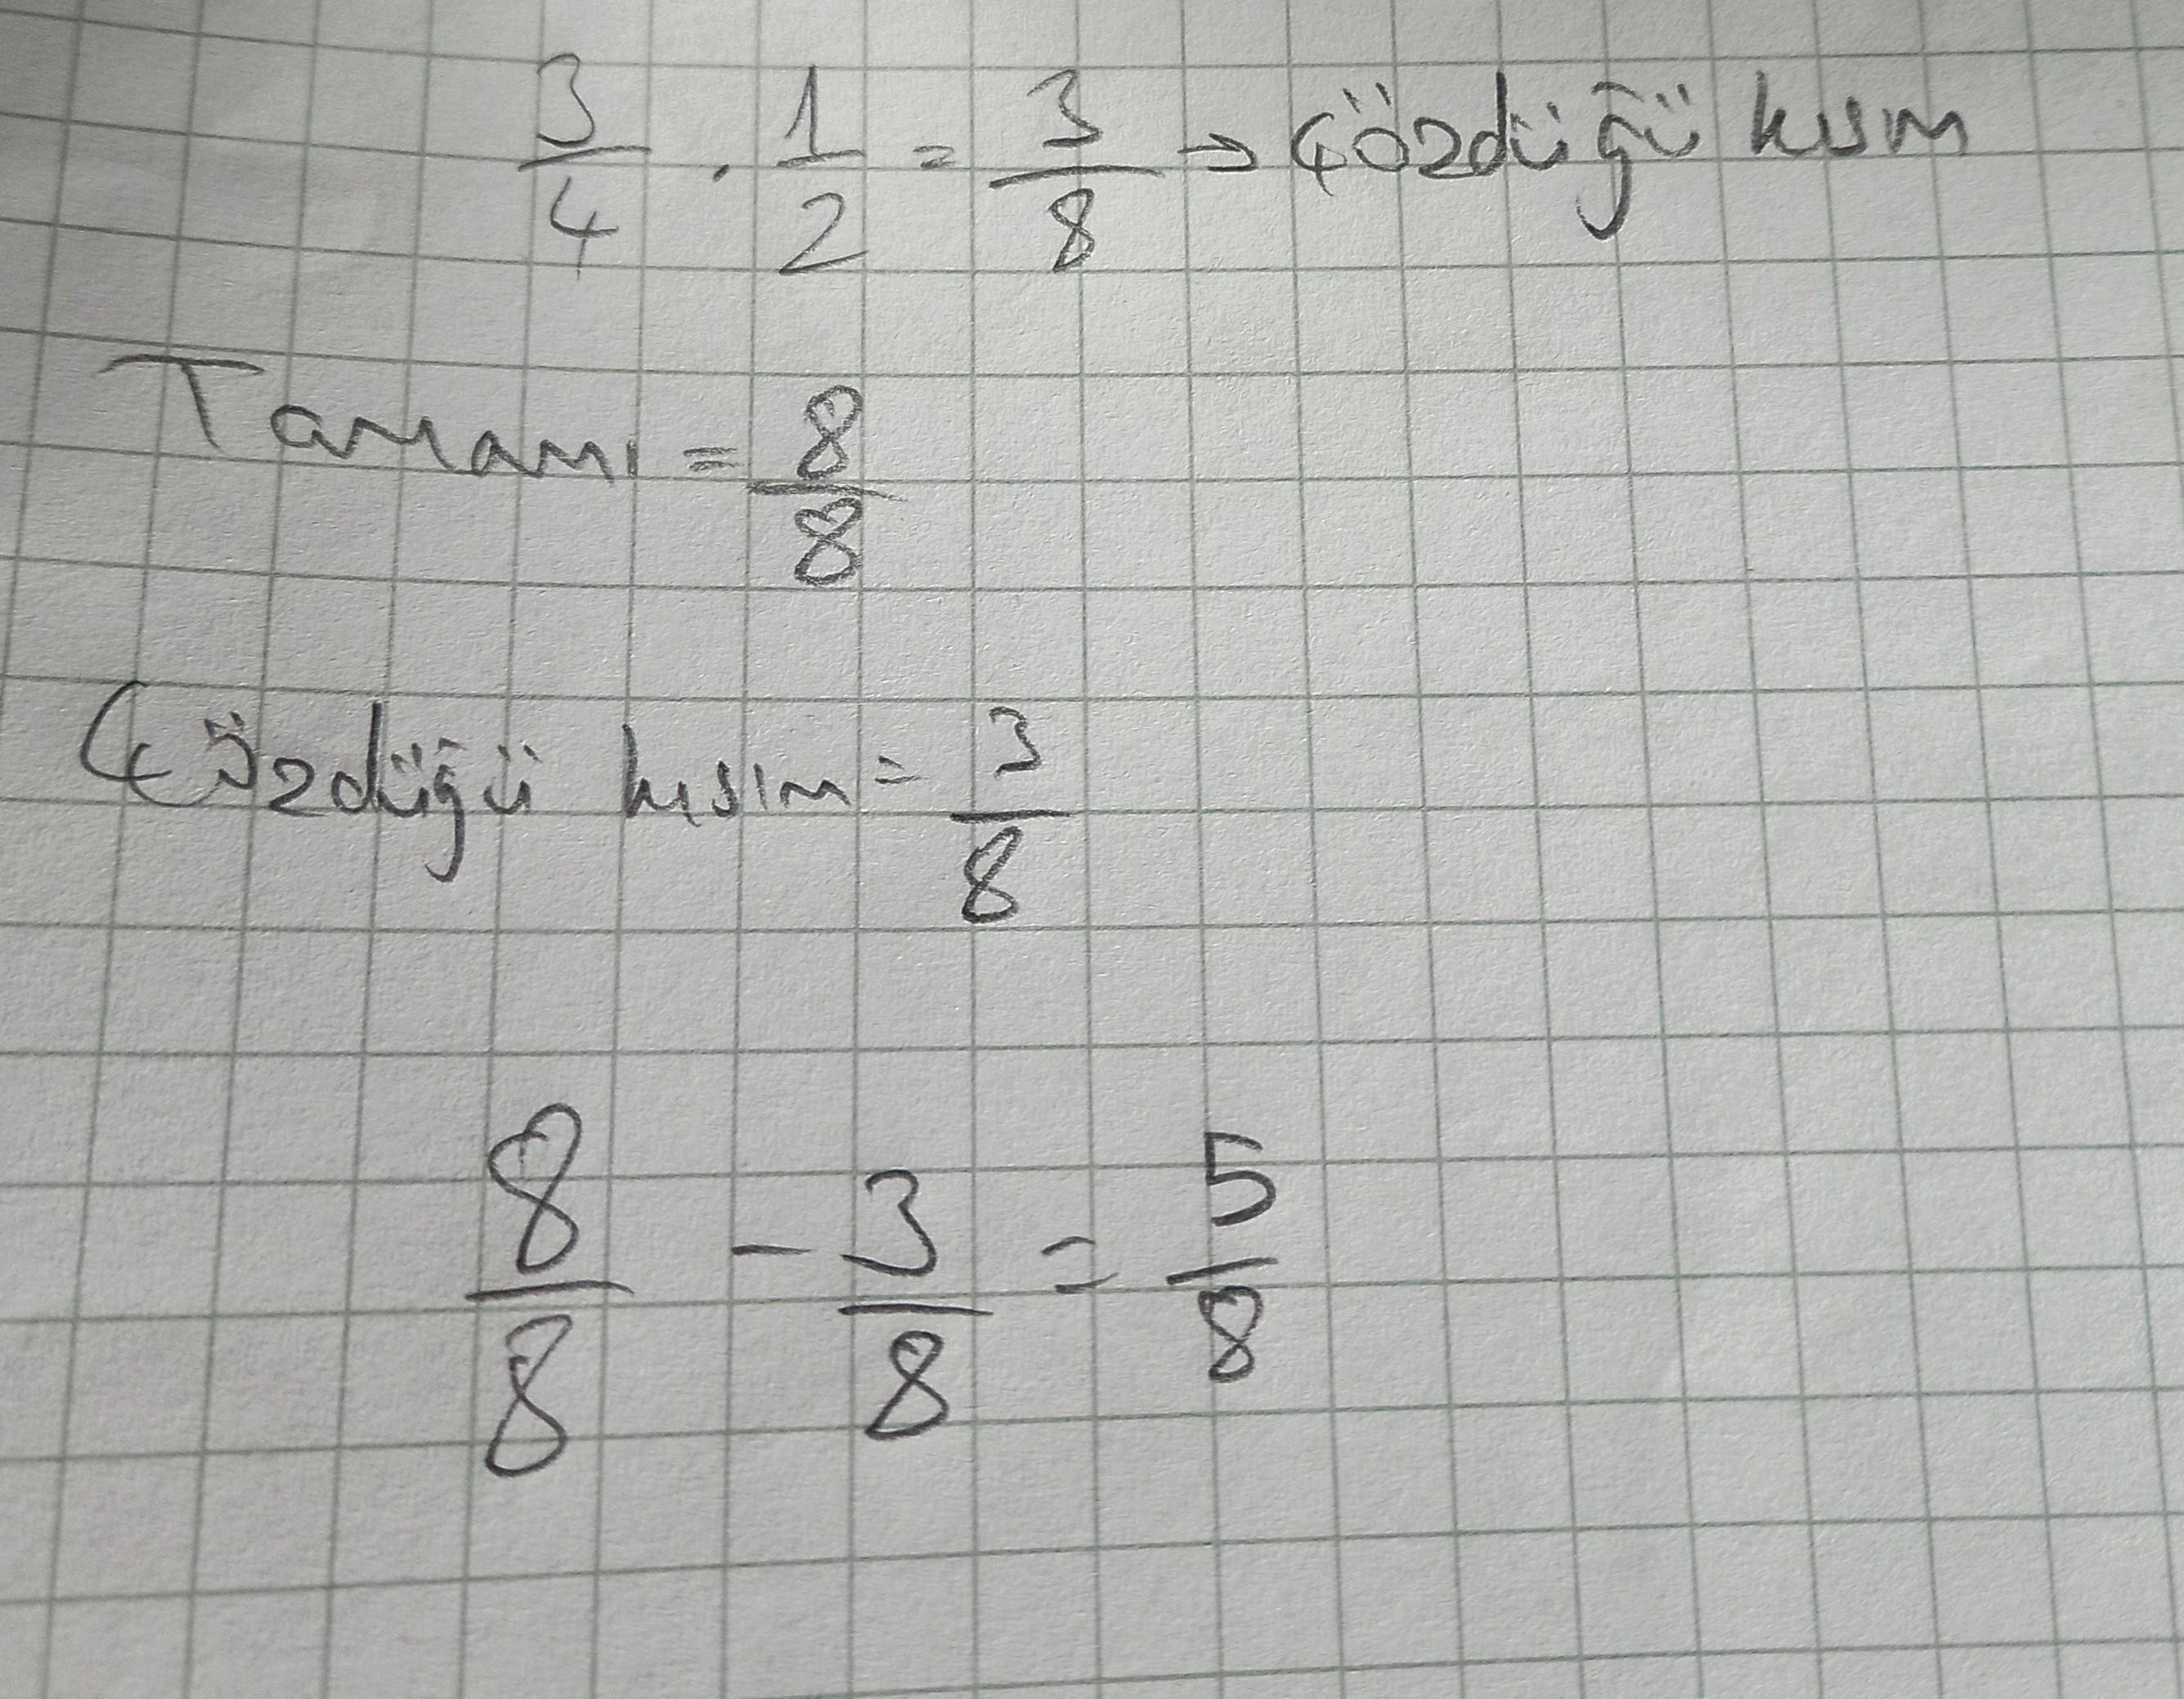 3/4 . 1/2 = 3/8 → çözdüğü kısım
Tamamı = 8/8
Çözdüğü kısım = 3/8
8/8 - 3/8 = 5/8